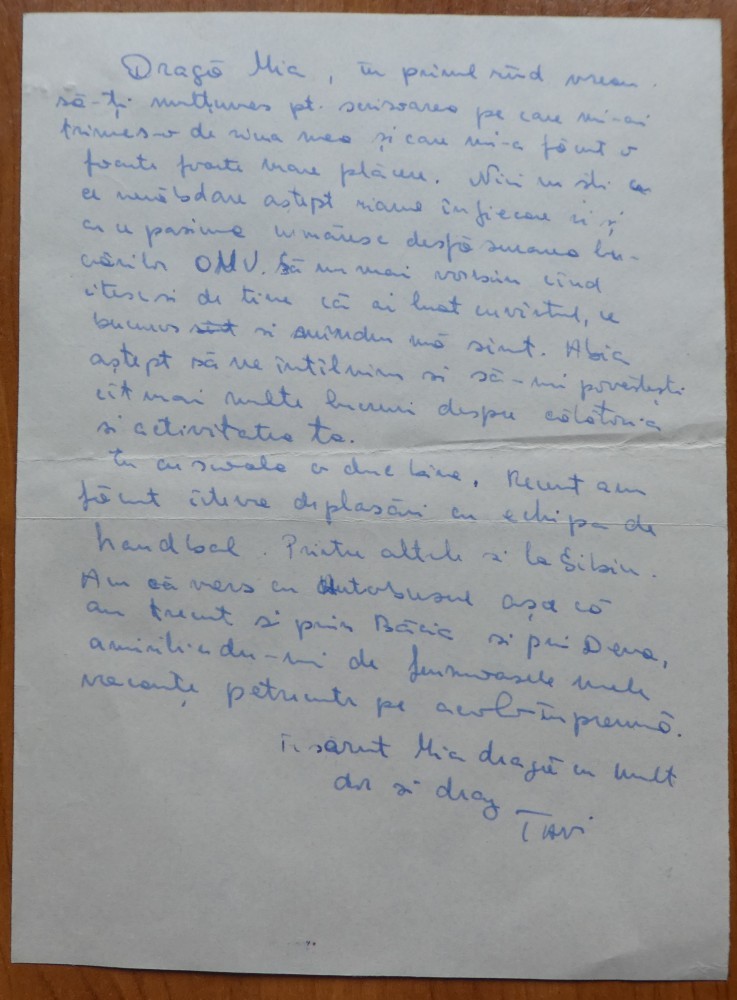 Dragă Mia, în primul rînd vreau
să-ți mulțumesc pt. scrisoarea pe care mi-ai
trimes-o de ziua mea și care mi-a făcut o
foarte foarte mare plăcere. Nici nu știi cu
ce nerăbdare aștept ziarul în fiecare zi și
cu ce pasiune urmăresc desfășurarea lu-
crărilor OMV. Să nu mai vorbim cînd
citesc si de tine că ai luat cuvîntul, ce
bucuros sînt si mîndru mă simt. Abia
aștept să ne întîlnim si să-mi povestești
cît mai multe lucruri despre călătoria
si activitatea ta.
Eu cu scoala o duc bine. Recent am
făcut cîteva deplasări cu echipa de
handbal. Printre altele si la Sibiu.
Am mers cu Autobusul așa că
am trecut si prin Băcia si prin Deva,
amintindu-mi de frumoasele mele
vacanțe petrecute pe acolo împreună.
Te sărut Mia dragă cu mult
dor si drag
TAVi